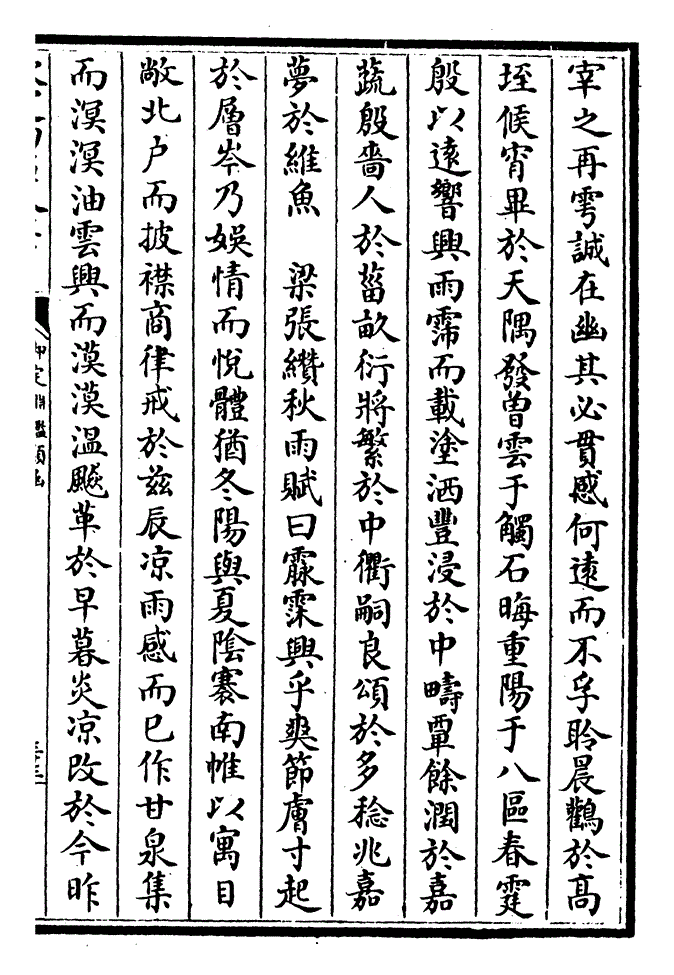 宰之再雩誠在幽其必貫感何遠而不孚聆晨鸛於髙
垤候宵畢於天隅發曽雲于觸石晦重陽于八區春霆
殷以逺響興雨霈而載塗洒豐浸於中疇覃餘潤於嘉
蔬殷嗇人於菑畝衍將繁於中衢嗣良頌於多稔兆嘉
夢於維魚　梁張纉秋雨賦曰霡霂興乎爽節膚寸起
於層岑乃娱情而悅體猶冬陽與夏陰褰南帷以寓目
敞北户而披襟商律戒於兹辰凉雨感而已作甘泉集
而溟溟油雲興而漠漠温飈革於早暮炎凉改於今昨
御定淵鑑類函